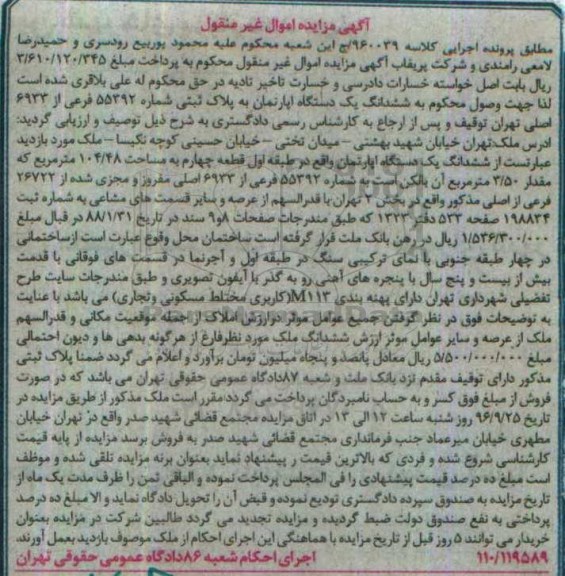 آگهی مزایده اموال غیر منقول
مطابق پرونده اجرایی کلاسه ۹۶۰۰۳۹/ج این شعبه محکوم علیه محمود پوربیع رودسری و حمیدرضا
لامعی رامندی و شرکت پریفاب آگهی مزایده اموال غیر منقول محکوم به پرداخت مبلغ ۳/۶۱۰/۱۲۰/۳۴۵
ریال بابت اصل خواسته خسارات دادرسی و خسارت تاخیر تادیه در حق محکوم له علی بلاقری شده است
لذا جهت وصول محکوم به ششدانگ یک دستگاه اپارتمان به پلاک ثبتی شماره ۵۵۳۹۲ فرعی از ۶۹۳۳
اصلی تهران توقیف و پس از ارجاع به کارشناس رسمی دادگستری به شرح ذیل توصیف و ارزیابی گردید:
ادرس ملک:تهران خیابان شهید بهشتی – میدان تختی – خیابان حسینی کوچه نکیسا – ملک مورد بازدید
عبارتست از ششدانگ یک دستگاه اپارتمان واقع در طبقه اول قطعه چهارم به مساحت ۱۰۴/۴۸ مترمربع که
مقدار ۳/۵۰ مترمربع آن بالکن است به شماره ۵۵۳۹۲ فرعی از ۶۹۳۳ اصلی مفروز و مجزی شده از ۲۶۷۲۲
فرعی از اصلی مذکور واقع در بخش ۳ تهران با قدرالسهم از عرصه و سایر قسمت های مشاعی به شماره ثبت
۱۹۸۸۳۴ صفحه ۵۲۳ دفتر ۱۳۲۳ که طبق مندرجات صفحات ۸و۹ سند در تاریخ ۸۸/۱/۳۱ در قبال مبلغ
۱/۵۳۶/۳۰۰/۰۰۰ ریال در رهن بانک ملت قرار گرفته است ساختمان محل وقوع عبارت است ازساختمانی
در چهار طبقه جنوبی با نمای ترکیبی سنگ در طبقه اول و آجرنما در قسمت های فوقانی با قدمت
بیش از بیست و پنج سال با پنجره های آهنی رو به گذر با آیفون تصویری و طبق مندرجات سایت طرح
تفضیلی شهرداری تهران دارای پهنه بندی M۱۱۳(کاربری مختلط مسکونی وتجاری) می باشد با عنایت
به توضیحات فوق در نظر گرفتن جمیع عوامل موثر درارزش املاک از جمله موقعیت مکانی و قدرالسهم
ملک از عرصه و سایر عوامل موثر ارزش ششدانگ ملک مورد نظرفارغ از هرگونه بدهی ها و دیون احتمالی
مبلغ ۵/۵۰۰/۰۰۰/۰۰۰ ریال معادل پانصد و پنجاه میلیون تومان برآورد و اعلام می گردد ضمنا پلاک ثبتی
مذکور دارای توقیف مقدم نزد بانک ملت و شعبه ۸۷دادگاه عمومی حقوقی تهران می باشد که در صورت
فروش از مبلغ فوق کسر و به حساب نامبردگان پرداخت می گردد مقرر است ملک مذکور از طریق مزایده در
تاریخ ۹۶/۹/۲۵ روز شنبه ساعت ۱۲ الی ۱۳ در اتاق مزایده مجتمع قضائی شهید صدر واقع در تهران خیابان
مطهری خیابان میرعماد جنب فرمانداری مجتمع قضائی شهید صدر به فروش برسد مزایده از پایه قیمت
کارشناسی شروع شده و فردی که بالاترین قیمت ر پیشنهاد نماید بعنوان برنه مزایده تلقی شده و موظف
است مبلغ ده درصد قیمت پیشنهادی را فی المجلس پرداخت نموده و الباقی ثمن را ظرف مدت یک ماه از
تاریخ مزایده به صندوق سپرده دادگستری تودیع نموده و قبض آن را تحویل دادگاه نماید و الا مبلغ ده درصد
پرداختی به نفع صندوق دولت ضبط گردیده و مزایده تجدید می گردد طالبین شرکت در مزایده بعنوان
خریدار می توانند ۵ روز قبل از تاریخ مزایده با هماهنگی این اجرای احکام از ملک موصوف بازدید بعمل آورند.
۱۱۰/۱۱۹۵۸۹ اجرای احکام شعبه ۸۶دادگاه عمومی حقوقی تهران